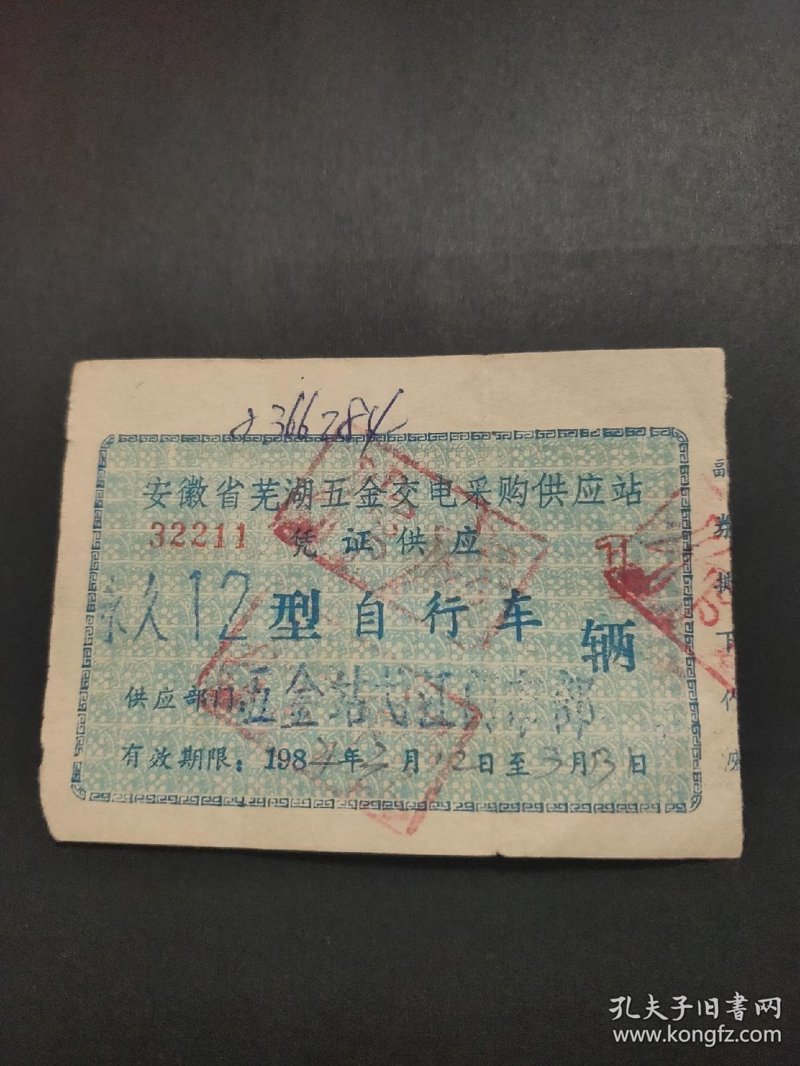 366284
安徽省芜湖五金交电采购供应站
32211 凭证供应
永久12型自行车 辆
供应部门 五金站 江门市部
有效期限：198 年3月12日至3月13日
副券撕下作废
孔夫子旧书网
www.kongfz.com